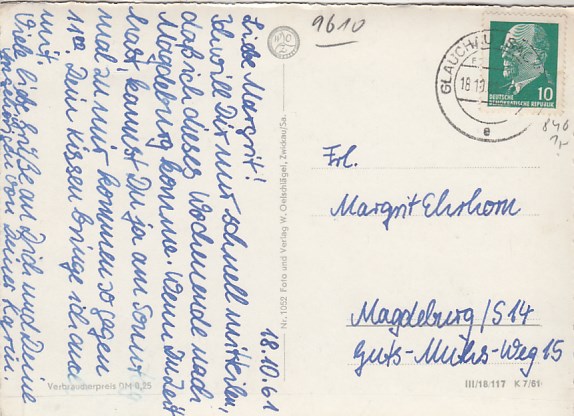 18.10.61
Liebe Margrit!
Ich will Dir nur schnell mitteilen,
daß ich dieses Wochenende nach
Magdeburg komme. Wenn Du Zeit
hast, kannst Du ja am Sonn-
mal zu mir kommen so gegen
11⁰⁰. Dein Kissen bringe ich auch
mit.
Viele liebe Grüße an Dich und Deine
von Deiner Karin
Verbraucherpreis DM 0,25
Nr. 1052 Foto und Verlag W. Oelschlägel, Zwickau/Sa.
9610
GLAUCHAU
18.10.
e
10
DEUTSCHE
DEMOKRATISCHE REPUBLIK
840
Frl.
Margrit Ehrhorn
Magdeburg/S14
Guts-Muths-Weg 15
III/18/117 K 7/61